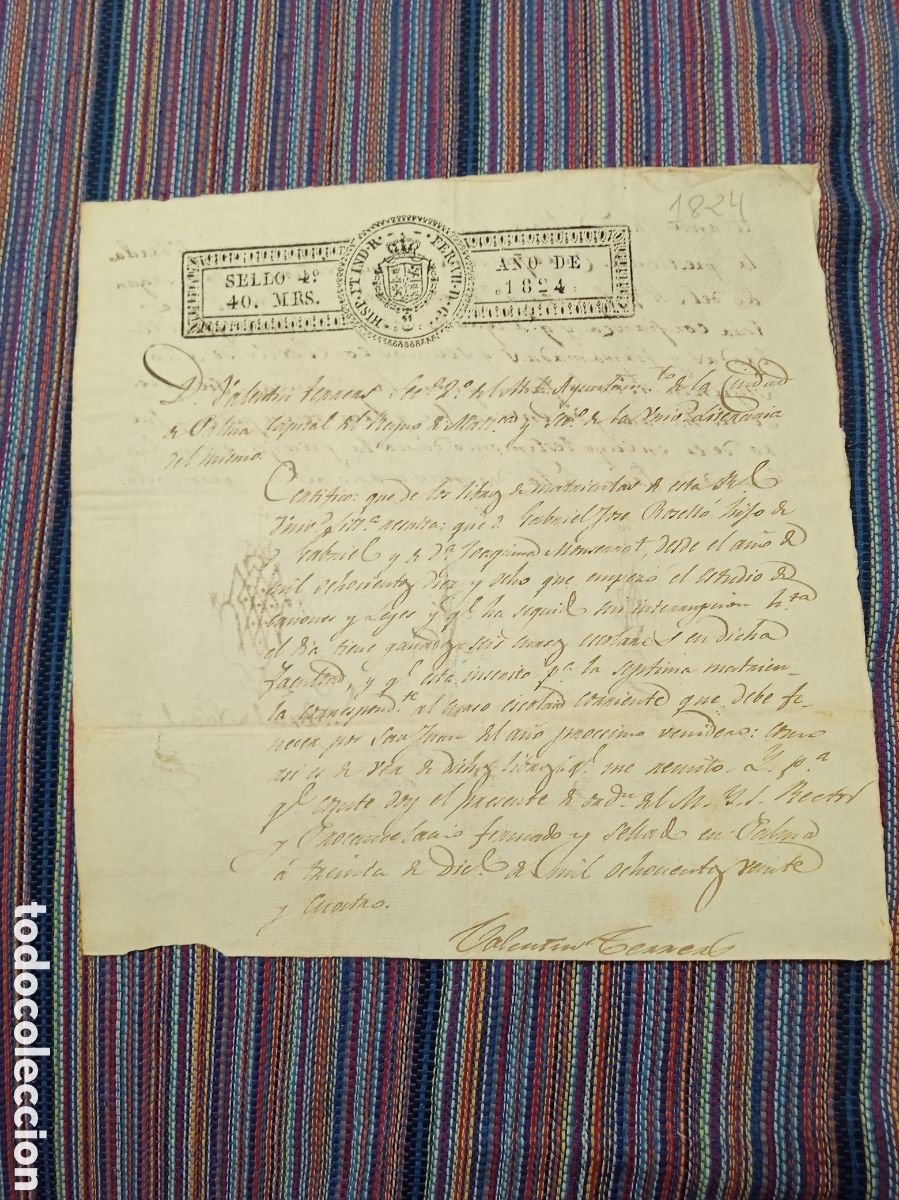 1824
SELLO 4º
40. MRS.
HISP. ET IND. R. FER. VII. D. G.
AÑO DE
1824
Dn Valentin Terrers Secº 2º del M. Iltre Ayuntamto de la Ciudad
de Palma Capital del Reyno de Mallca y Secº de la Univd Literaria
del mismo
Certifico: que de los libros de matriculas de esta Rl
Univd Litª resulta: que Dn Gabriel Jose Roselló hijo de
Gabriel y de Dª Joaquina Monserrat, desde el año de
mil ochocientos diez y ocho que empezó el estudio de
Canones y Leyes y qe ha seguido sin interrupcion hta
el dia tiene ganados seis cursos escolares en dicha
facultad, y qe está inscrito pª la septima matricu-
la correspondte al curso escolar corriente que debe fe-
necer por San Juan del año procsimo venidero: como
asi es de ver de dichos libros á qe me remito. Y pª
qe conste doy el presente de ordn del M. Y. S. Rector
y firmado y sellado en Palma
á treinta de Dice. de mil ochocientos veinte
y cuatro.
Valentin Terrers
todocoleccion